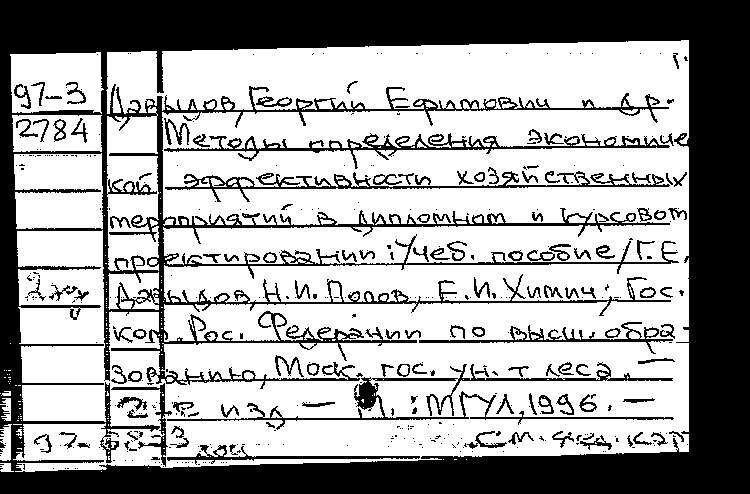 97-3 Давыдов, Георгий Ефимович и др.
2784 Методы определения экономичес
кой эффективности хозяйственных
мероприятий в дипломном и курсовом
проектировании: Учеб. пособие / Г.Е.
Давыдов, Н.И. Попов, Е.И. Химич; Гос.
ком. Рос. Федерации по высш. обра-
зованию, Моск. гос. ун-т леса. —
2-е изд. — М.: МГУЛ, 1996. —
См. след. кар